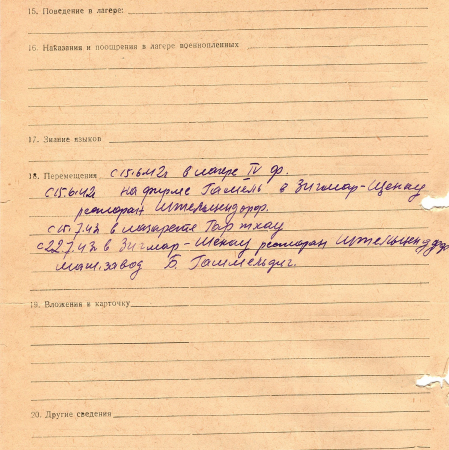 15. Поведение в лагере:
16. Наказания и поощрения в лагере военнопленных
17. Знание языков
18. Перемещения с 15.6.42 г. в лагере IV ф.
с 15.6.42 на фирме Гамель в Зигмар-Шенау
ресторан
с 15.7.42 в лазарете Гартхау
с 22.7.42 в Зигмар-Шенау ресторан
маш. завод Б.
19. Вложения в карточку
20. Другие сведения